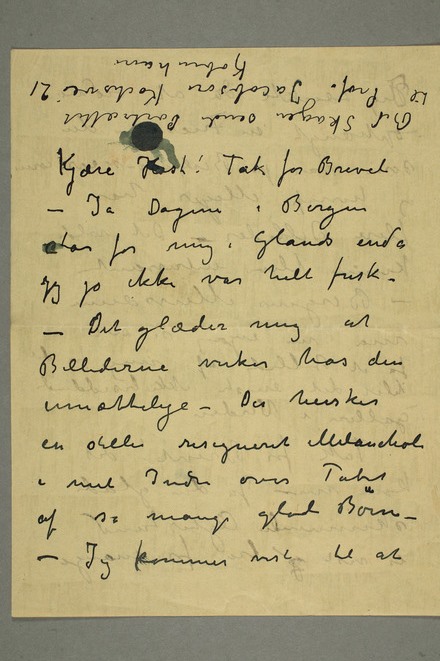 Kjære Høst! Tak for Brevet
– Ja Dagene i Bergen
står for mig i Glands enda
jeg jo ikke var helt frisk –
– Det glæder mig at
Billederne virker hos den
umættelige – Der hersker
en stille resigneret Melancholi
i mit Indre over Tabet
af så mange glad Børn –
– Jeg kommer vist til at
Bed Skagen sende Portrettet
til Prof. Jacobson Kochsvei 21
København